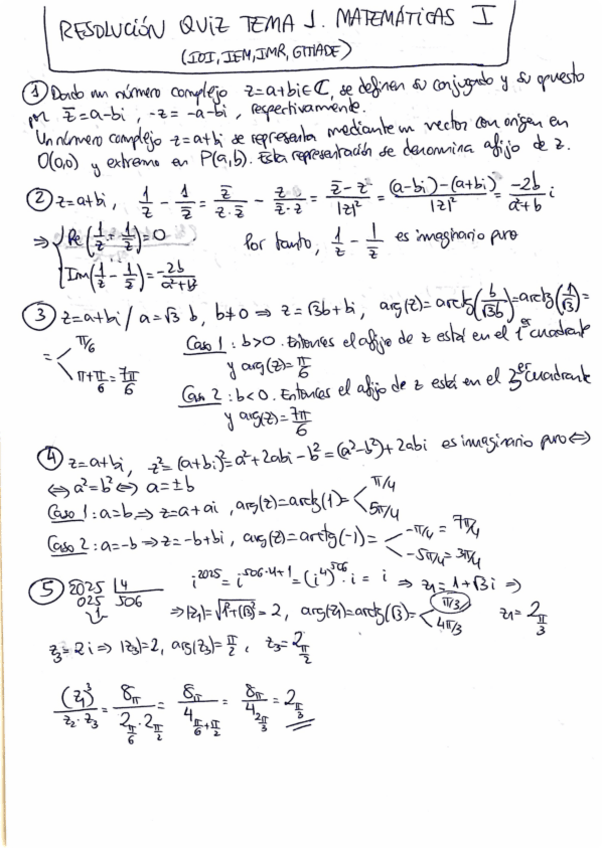 RESOLUCIÓN QUIZ TEMA 1. MATEMÁTICAS I
(IOI, IEM, IMR, GITIADE)
① Dado un número complejo z=a+bi∈ℂ, se definen su conjugado y su opuesto
por z̄=a-bi, -z=-a-bi, respectivamente.
Un número complejo z=a+bi se representa mediante un vector con origen en
O(0,0) y extremo en P(a,b). Esta representación se denomina afijo de z.
② z=a+bi, 1/z - 1/z̄ = z̄/(z·z̄) - z/(z̄·z) = (z̄-z)/|z|² = ((a-bi)-(a+bi))/|z|² = -2b/(a²+b) i
⇒ { Re(1/z - 1/z̄)=0 Por tanto, 1/z - 1/z̄ es imaginario puro
Im(1/z - 1/z̄) = -2b/(a²+b²)
③ z=a+bi / a=√3 b, b≠0 ⇒ z=√3b+bi, arg(z)=arctg(b/√3b)=arctg(1/√3)=
= π/6 Caso 1: b>0. Entonces el afijo de z está en el 1er cuadrante
π+π/6=7π/6 y arg(z)=π/6
Caso 2: b<0. Entonces el afijo de z está en el 3er cuadrante
y arg(z)=7π/6
④ z=a+bi, z²=(a+bi)²=a²+2abi-b²=(a²-b²)+2abi es imaginario puro ⇔
⇔ a²=b² ⇔ a=±b
Caso 1: a=b ⇒ z=a+ai, arg(z)=arctg(1)= π/4 5π/4
Caso 2: a=-b ⇒ z=-b+bi, arg(z)=arctg(-1)= -π/4=7π/4 -5π/4=3π/4
⑤ 2025 |4 i²⁰²⁵=i^(506·4+1)=(i⁴)^506·i=i ⇒ z₁=1+√3i ⇒
025 506
1 ⇒|z₁|=√(1²+(√3)²)=2, arg(z₁)=arctg(√3)= π/3 4π/3 z₁=2_(π/3)
z₃=2i ⇒ |z₃|=2, arg(z₃)=π/2, z₃=2_(π/2)
(z₁)³/(z₂·z₃) = 8_π/(2_(π/6)·2_(π/2)) = 8_π/4_(π/6+π/2) = 8_π/4_(2π/3) = 2_(π/3)